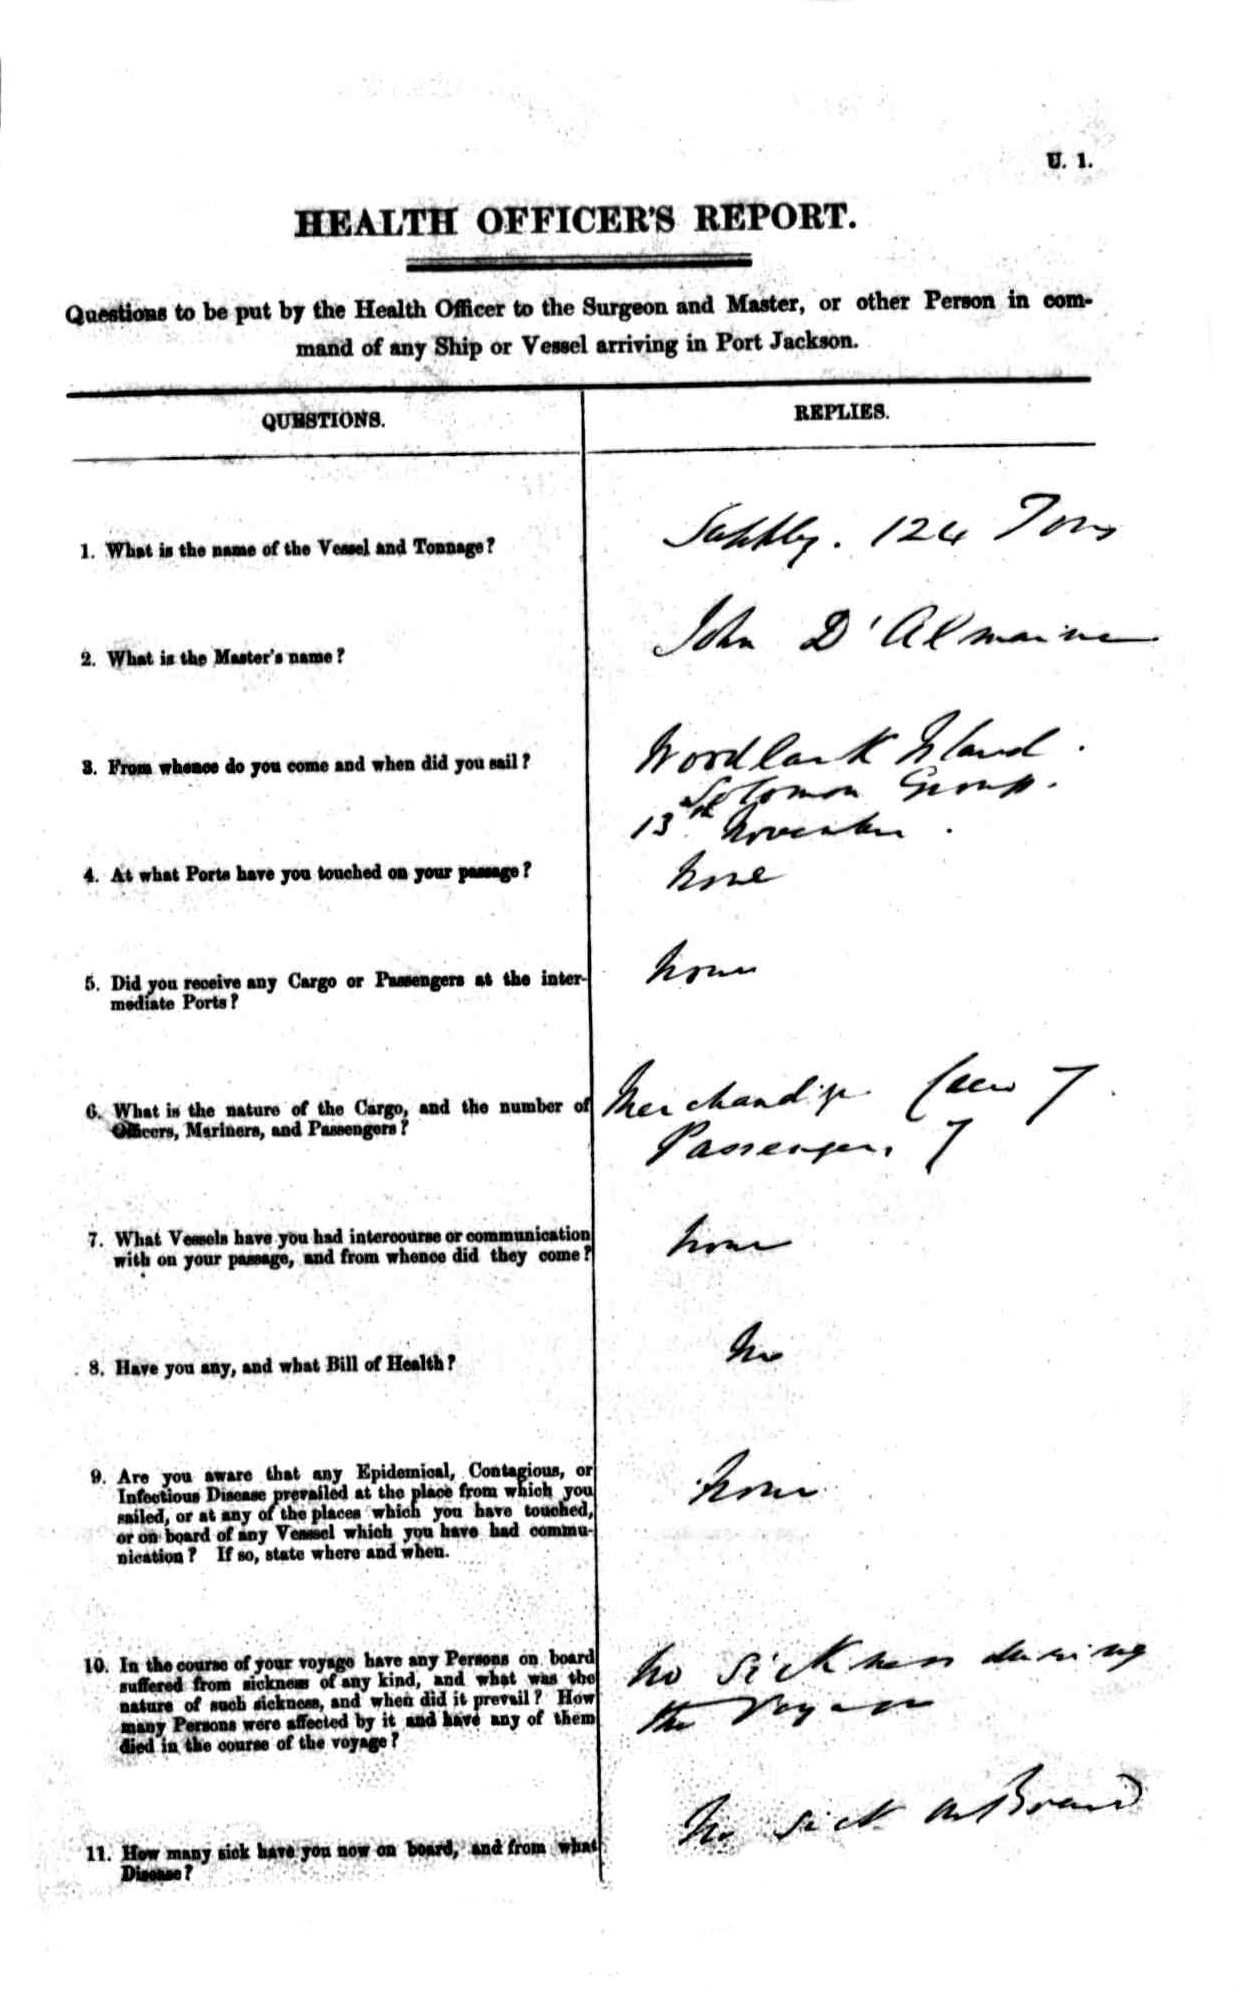 U. 1.
HEALTH OFFICER'S REPORT.
Questions to be put by the Health Officer to the Surgeon and Master, or other Person in com-
mand of any Ship or Vessel arriving in Port Jackson.
QUESTIONS.
REPLIES.
1. What is the name of the Vessel and Tonnage?
124 Tons
2. What is the Master's name?
John D'Almaine
3. From whence do you come and when did you sail?
Woodlark Island.
Solomon Group.
13th November.
4. At what Ports have you touched on your passage?
None
5. Did you receive any Cargo or Passengers at the inter-
mediate Ports?
None
6. What is the nature of the Cargo, and the number of
Officers, Mariners, and Passengers?
Merchandize Crew 7.
Passengers 7
7. What Vessels have you had intercourse or communication
with on your passage, and from whence did they come?
None
8. Have you any, and what Bill of Health?
No
9. Are you aware that any Epidemical, Contagious, or
Infectious Disease prevailed at the place from which you
sailed, or at any of the places which you have touched,
or on board of any Vesssel which you have had commu-
nication? If so, state where and when.
None
10. In the course of your voyage have any Persons on board
suffered from sickness of any kind, and what was the
nature of such sickness, and when did it prevail? How
many Persons were affected by it and have any of them
died in the course of the voyage?
No sickness during
the Voyage
11. How many sick have you now on board, and from what
Disease?
No sick on Board